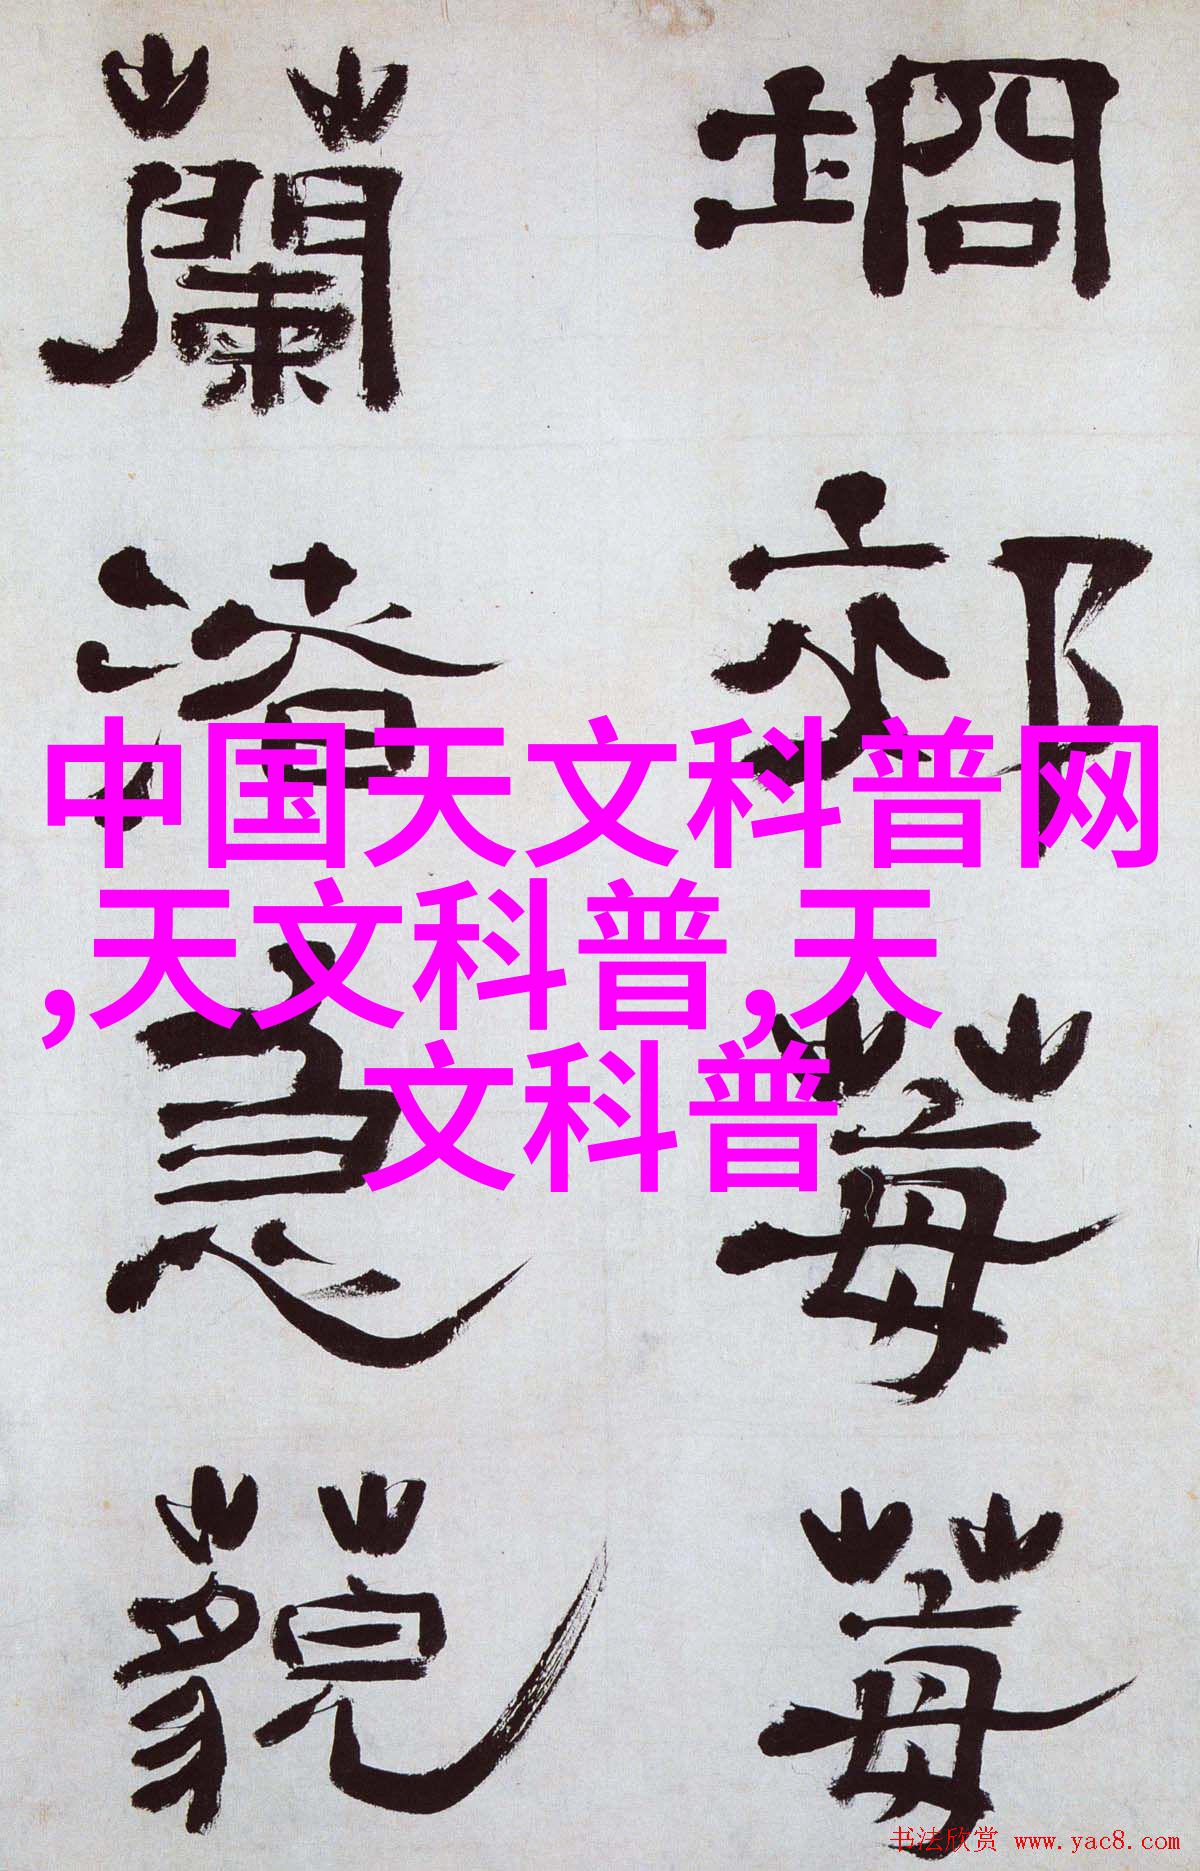 坰郊莓莓
蘭渚急藐
中国天文科普网
,天文科普,天
文科普
书法欣赏 www.yac8.com